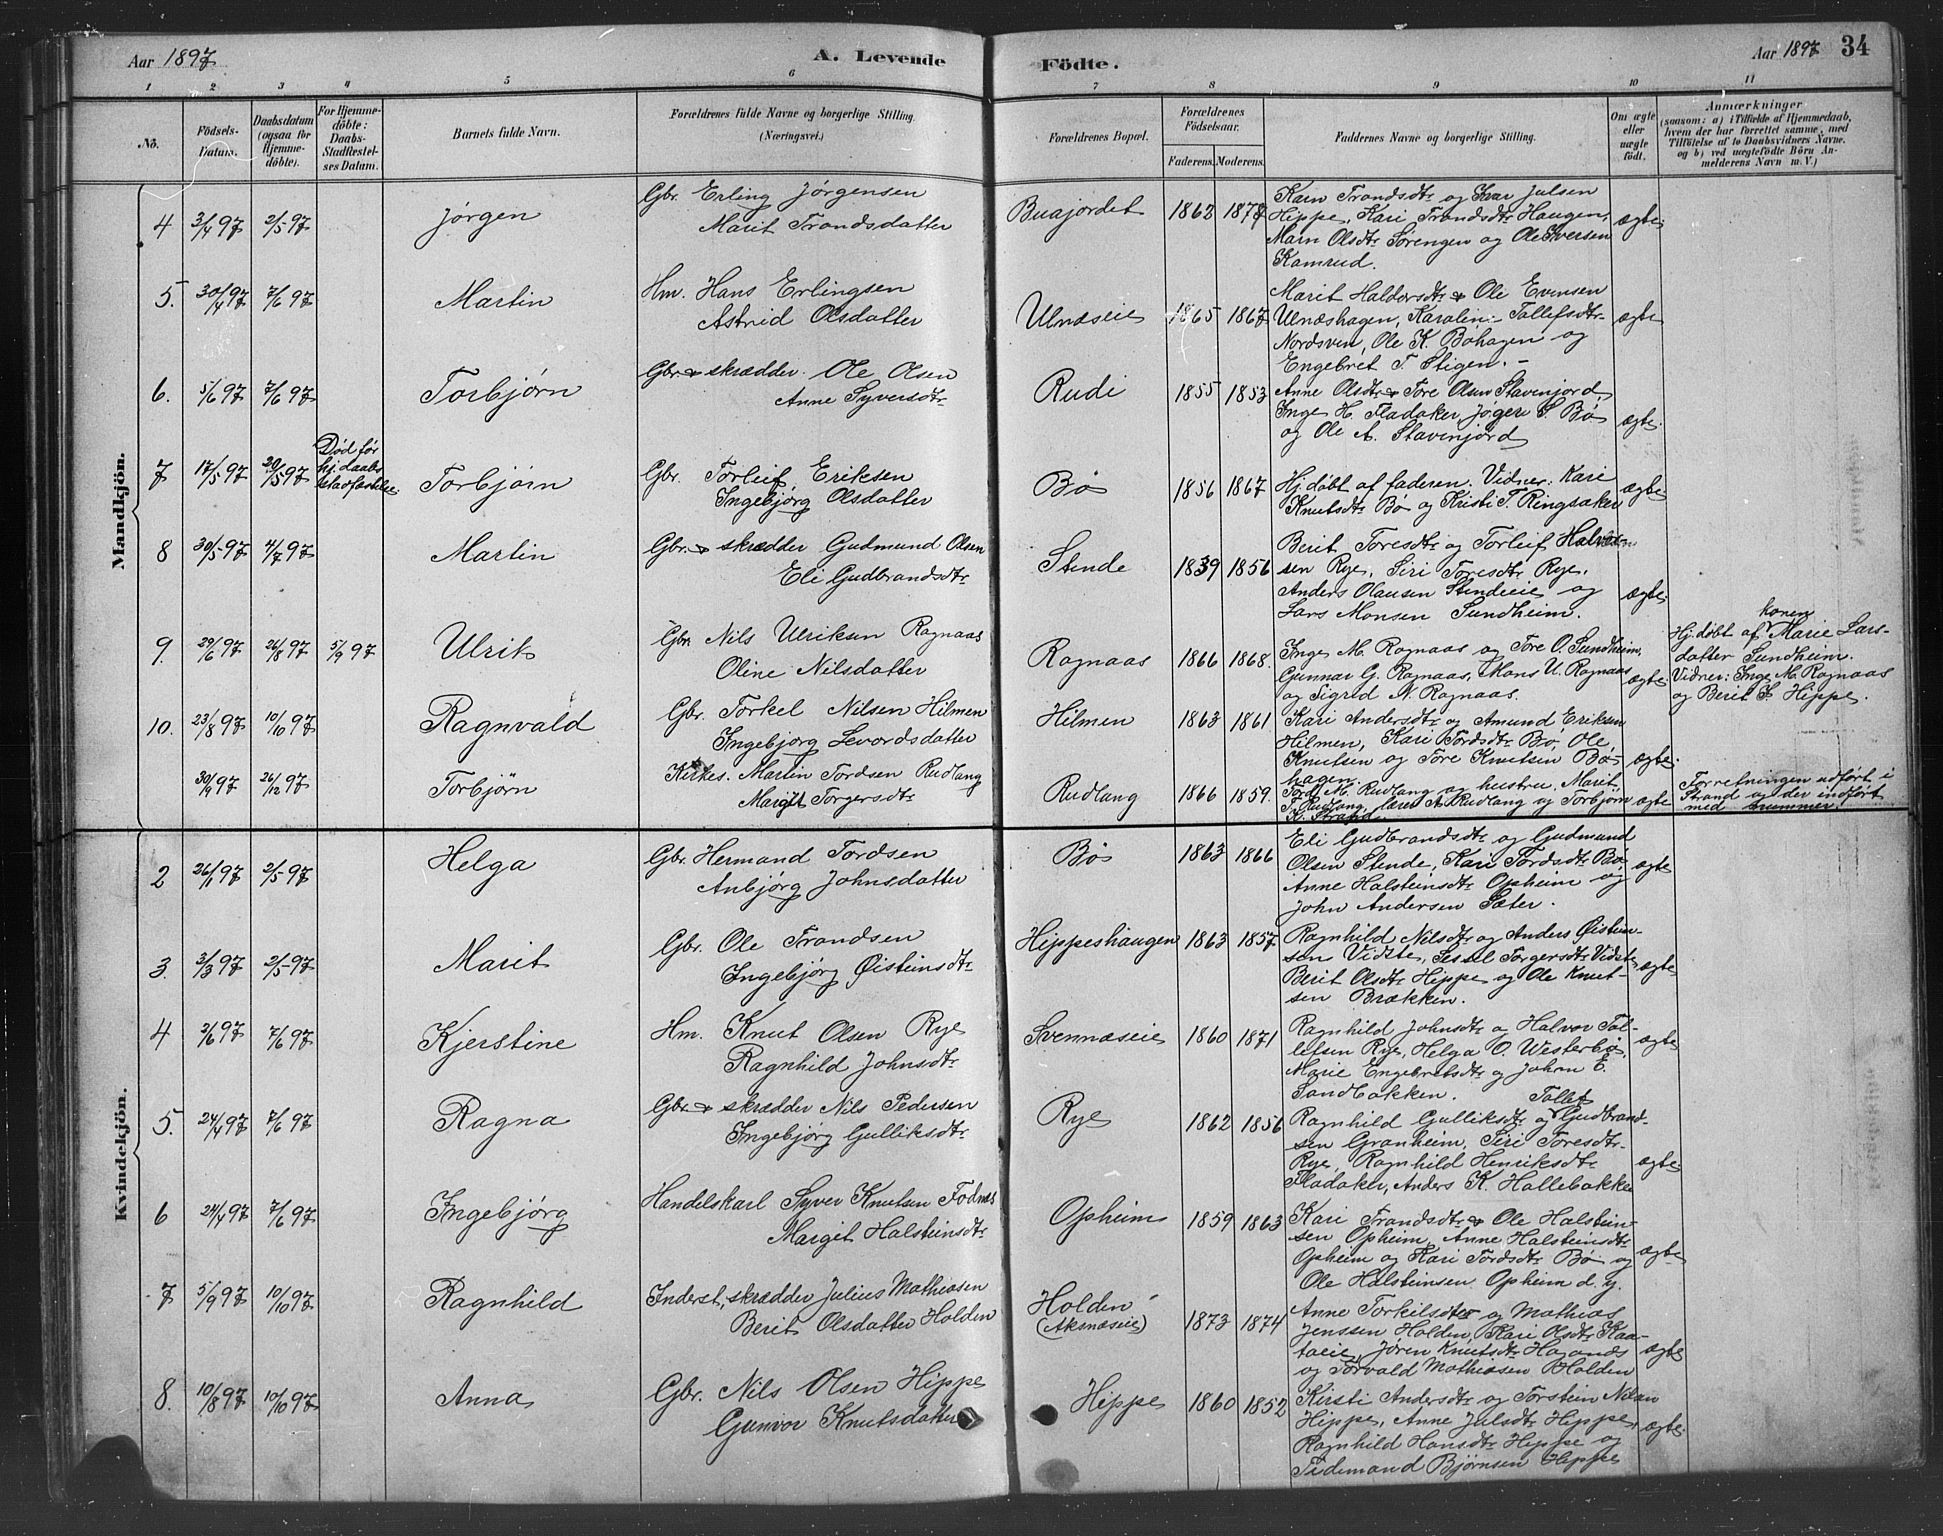 Aar 1897 A. Levende Fødte. Aar 1897 34
1 2 3 4 5 6 7 8 9 10 11
No. Födsels-Datum. Daabsdatum (ogsaa for Hjemmedöbte). For Hjemmedöbte: Daabs-Stadfæstelses Datum. Barnets fulde Navn. Forældrenes fulde Navne og borgerlige Stilling. (Næringsvei.) Forældrenes Bopæl. Forældrenes Födselsaar. Faderens. Moderens. Faddernes Navne og borgerlige Stilling. Om ægte eller uægte födt. Anmærkninger (saasom: a) i Tilfælde af Hjemmedaab, hvem der har forrettet samme, med Tilföielse af to Daabsvidners Navne, og b) ved uægtefödte Börn Anmelderens Navn m. V.)
Mandkjön.
4 3/4 97 2/5 97 Jørgen Gbr. Erling Jørgensen Buajordet 1862 1877 Karn Trondsdtr og Ivar Julsen ægte
Marit Trondsdatter Hippe, Kari Trondsdtr Haugen,
Marn Olsdtr Sørengen og Ole Iversen
Kamrud.
5. 30/4 97 7/6 97 Martin Hm. Hans Erlingsen Ulnæseie 1865 1867 Marit Haldorsdtr & Ole Evensen ægte
Astrid Olsdatter Ulnæshagen, Karolin Tollefsdtr
Nordsven, Ole K. Bøhagen og
Engebret T. Stigen.
6. 5/6 97 7/6 97 Torbjørn Gbr & skrædder Ole Olsen Rudi 1855 1853 Anne Olsdtr & Tore Olsen Stavenjord, ægte.
Anne Syversdtr Inge H. Fladaker, Jøger S. Bø
og Ole A. Stavenjord
7 17/5 97 20/5 97 Død før hj.daabs stadfæstelse Torbjørn Gbr. Torleif Eriksen Bø 1856 1867 Hj.døbt af faderen. Vidner: Kari ægte
Ingebjørg Olsdatter Knutsdtr Bø og Kristi T. Ringsaker
8 30/5 97 4/7 97 Martin Gbr. & skrædder Gudmund Olsen Stende 1839 1856 Berit Toresdtr og Torleif Halvor- ægte
Eli Gudbrandsdtr sen Rye, Siri Toresdtr Rye,
Anders Olausen Stendeeie og
Lars Monsen Sundheim.
9. 29/6 97 26/8 97 5/9 97 Ulrik Gbr Nils Ulriksen Rognaas Rognaas 1866 1868. Inge M. Rognaas og Tore O. Sundheim, ægte Hj.døbt af konen Marie Lars-
Oline Nilsdatter Gunnar G. Rognaas, Mons U. Rognaas datter Sundheim.
og Sigrid N. Rognaas. Vidner: Inge M. Rognaas
og Berit S. Hippe.
10. 23/8 97 10/10 97 Ragnvald Gbr. Torkel Nilsen Hilmen Hilmen 1863 1861 Kari Andersdtr og Amund Eriksen ægte.
Ingebjørg Levordsdatter Hilmen, Kari Tordsdtr Bø, Ole
Knutsen og Tore Knutsen Bø-
hagen.
30/9 97 26/12 97 Torbjörn Kirkes. Martin Tordsen Rudlang Rudlang 1866 1859. Tord M. Rudlang og hustru, Marit ægte Forretningen udført i
Margit Torgersdtr T. Rudlang, lærer A. Rudlang og Torbjørn Strand og der indført
K. Strand. med nummer.
Kvindekjön.
2 26/1 97 2/5 97 Helga Gbr. Hermand Tordsen Bø 1863 1866 Eli Gudbrandsdtr og Gudmund ægte
Anbjørg Johnsdatter Olsen Stende, Kari Tordsdtr Bø,
Anne Halsteinsdtr Opheim og
John Andersen Sæter.
3. 3/3 97 2/5 97 Marit Gbr. Ole Trondsen Hippeshaugen 1863 1857 Ragnhild Nilsdtr og Anders Østein- ægte
Ingebjørg Øisteinsdtr sen Vidste, Sesel Torgersdtr Vidste
Berit Olsdtr Hippe og Ole Knut-
sen Brækken.
4 2/6 97 7/6 97 Kjerstine Hm. Knut Olsen Rye Svennæseie 1860 1871 Ragnhild Johnsdtr og Halvor Tol- ægte
Ragnhild Johnsdtr lefsen Rye, Helga O. Westerbø,
Marie Engebretsdtr og Johan E.
Sandbakken.
5. 24/4 97 7/6 97 Ragna Gbr & skrædder Nils Pedersen Rye 1862 1856 Ragnhild Gulliksdtr og Tollef Gudbrand- ægte
Ingebjørg Gulliksdtr sen Granheim, Siri Toresdtr
Rye, Ragnhild Henriksdtr
Fladaker, Anders K. Hallebakken
6 24/4 97 7/6 97 Ingebjörg Handelskarl Syver Knutsen Fodnæs Opheim 1859 1863 Kari Trondsdtr & Ole Halstein- ægte
Margit Halsteinsdtr sen Opheim, Anne Halsteinsdtr
Opheim og Kari Tordsdtr Bø og
Ole Halsteinsen Opheim d. y.
7 5/9 97 10/10 97 Ragnhild Inderst, skrædder Julius Mathiasen Holden (Aksnæseie) 1873 1874 Anne Torkilsdtr og Mathias ægte
Berit Olsdatter Holden Jenssen Holden, Kari Olsdtr Kaa-
taeie, Jøren Knutsdtr
og Torvald Mathiasen Holden
8. 10/8 97 10/10 97 Anna Gbr. Nils Olsen Hippe Hippe 1860 1852 Kirsti Andersdtr og Torstein Nilsen ægte
Gunvor Knutsdatter Hippe, Anne Julsdtr Hippe,
Ragnhild Hansdtr Hippe og
Tidemand Bjørnsen Hippe